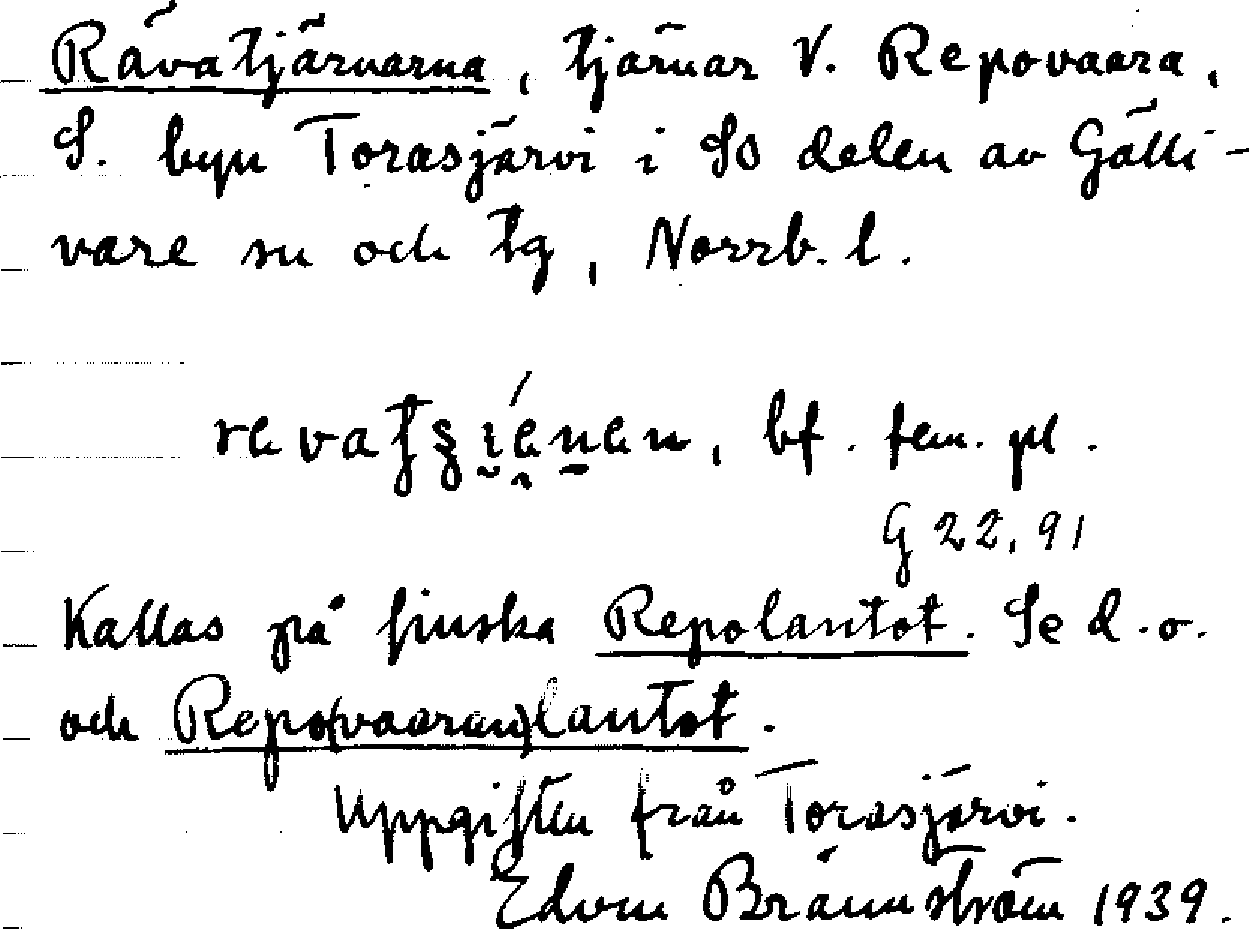 Rävatjärnarna, tjärnar V. Repovaara,
S. byn Torasjärvi i SO delen av Gälli-
vare sn och tg, Norrb. l.
bf. fem. pl.
G 22, 91
Kallas på finska Repolantot. Se d.o.
och Repo(vaaran)lantot.
Uppgiften från Torasjärvi.
Edvin Brännström 1939.